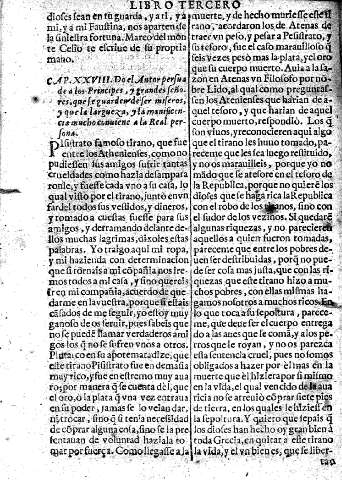 LIBRO TERCERO
dioses sean en tu guarda, y a ti, y a
mi, y a mi Faustina, nos aparten de
la siniestra fortuna. Marco del món
te Celio te escriue de su propria
mano.
CAP. XXVIII. Do el Autor persua
de a los Principes, y grandes seño-
res, que se guardẽ de ser miseros,
y que la largueza, y la manificen
cia mucho conuiene a la Real per-
sona.
Pisistrato famoso tirano, que fue
entre los Athenienses, como no
pudiessen sus amigos sufrir tantas
crueldades como hazia, desampara
ronle, y fuesse cada vno a su casa, lo
qual visto por el tirano, juntò en vn
fardel todos sus vestidos, y dineros,
y tomado a cuestas fuesse para sus
amigos, y derramando delante de-
llos muchas lagrimas, dixoles estas
palabras. Yo traigo aqui mi ropa,
y mi hazienda con determinacion
que si tornais a mi cõpañia nos ire-
mos todos a mi casa, y sino quereis
me acuerdo de que-
darme en la vuestra, porque si estais
cãsados de me seguir, yo estoy muy
ganoso de os seruir, pues sabeis que
no se puedẽ llamar verdaderos ami
gos los q̃ no se sufren vnos a otros.
Plutarco en su apotemata dize, que
este tirano Pisistrato fue en demasia
muy rico, y fue en estremo muy aua
ro: por manera q̃ se cuenta del, que
el oro, ò la plata q̃ vna vez entraua
en su poder, jamas se lo veian dar,
ni trocar, sino q̃ si tenia necessidad
de cõprar alguna cosa, sino se la pre
sentauan de voluntad haziala to-
mar por fuerça. Como llegasse a la
muerte, y de hecho muriesse este ti
rano, acordaron los de Atenas de
traer vn peso, y pesar a Pesistrato, y
su tesoro, fue el caso marauilloso q̃
seis vezes pesò mas la plata, y el oro
que su cuerpo muerto. Auia a la sa-
zon en Atenas vn Filosofo por nõ-
bre Lido, al qual como preguntas-
sen los Atenienses que harian de a-
quel tesoro, y que harian de aquel
cuerpo muerto, respondiò. Los q̃
son viuos, y reconocieren aqui algo
que el tirano les huuo tomado, pa-
receme que les sea luego restituido,
y no os marauilleis, porque yo no mã
do que se atesore en el tesoro de
la Republica, porque no quierẽ los
dioses que se haga rica la Republica
con el robo de los tiranos, sino con
el sudor de los vezinos. Si quedarẽ
algunas riquezas, y no parecieren
aquellos a quien fueron tomadas,
pareceme que entre los pobres de-
uen ser destribuidas, porq̃ no pue-
de ser cosa mas justa, que con las ri-
quezas que este tirano hizo a mu-
chos pobres, con ellas mismas ha-
gamos nosotros a muchos ricos. En
lo que toca a su sepoltura, parece-
me, que deue ser el cuerpo entrega
do a las aues que le comã, y a los per
ros que le royan, y no os parezca
esta sentencia cruel, pues no somos
obligados a hazer por el mas en la
muerte que el hiziera por si mismo
en la vida, el qual vencido de la aua
ricia no se atreuiò cõprar siete pies
de tierra, en los quales le hiziessẽ
la sepoltura. Y quiero que sepais q̃
los dioses han hecho oy gran bien à
toda Grecia, en quitar a este tirano
la vida, y el vn bien es, que se liber-
tan